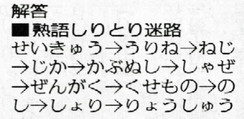 解答
■熟語しりとり迷路
せいきゅう→うりね→ねじ
→じか→かぶぬし→しゃぜ
→ぜんがく→くせもの→の
し→しょり→りょうしゅう